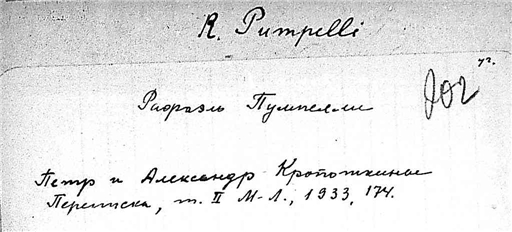 R. Pumpelli
Рафаэль Пумпелли
Петр и Александр Кропоткины
Переписка, т. II М-Л., 1933, 174.